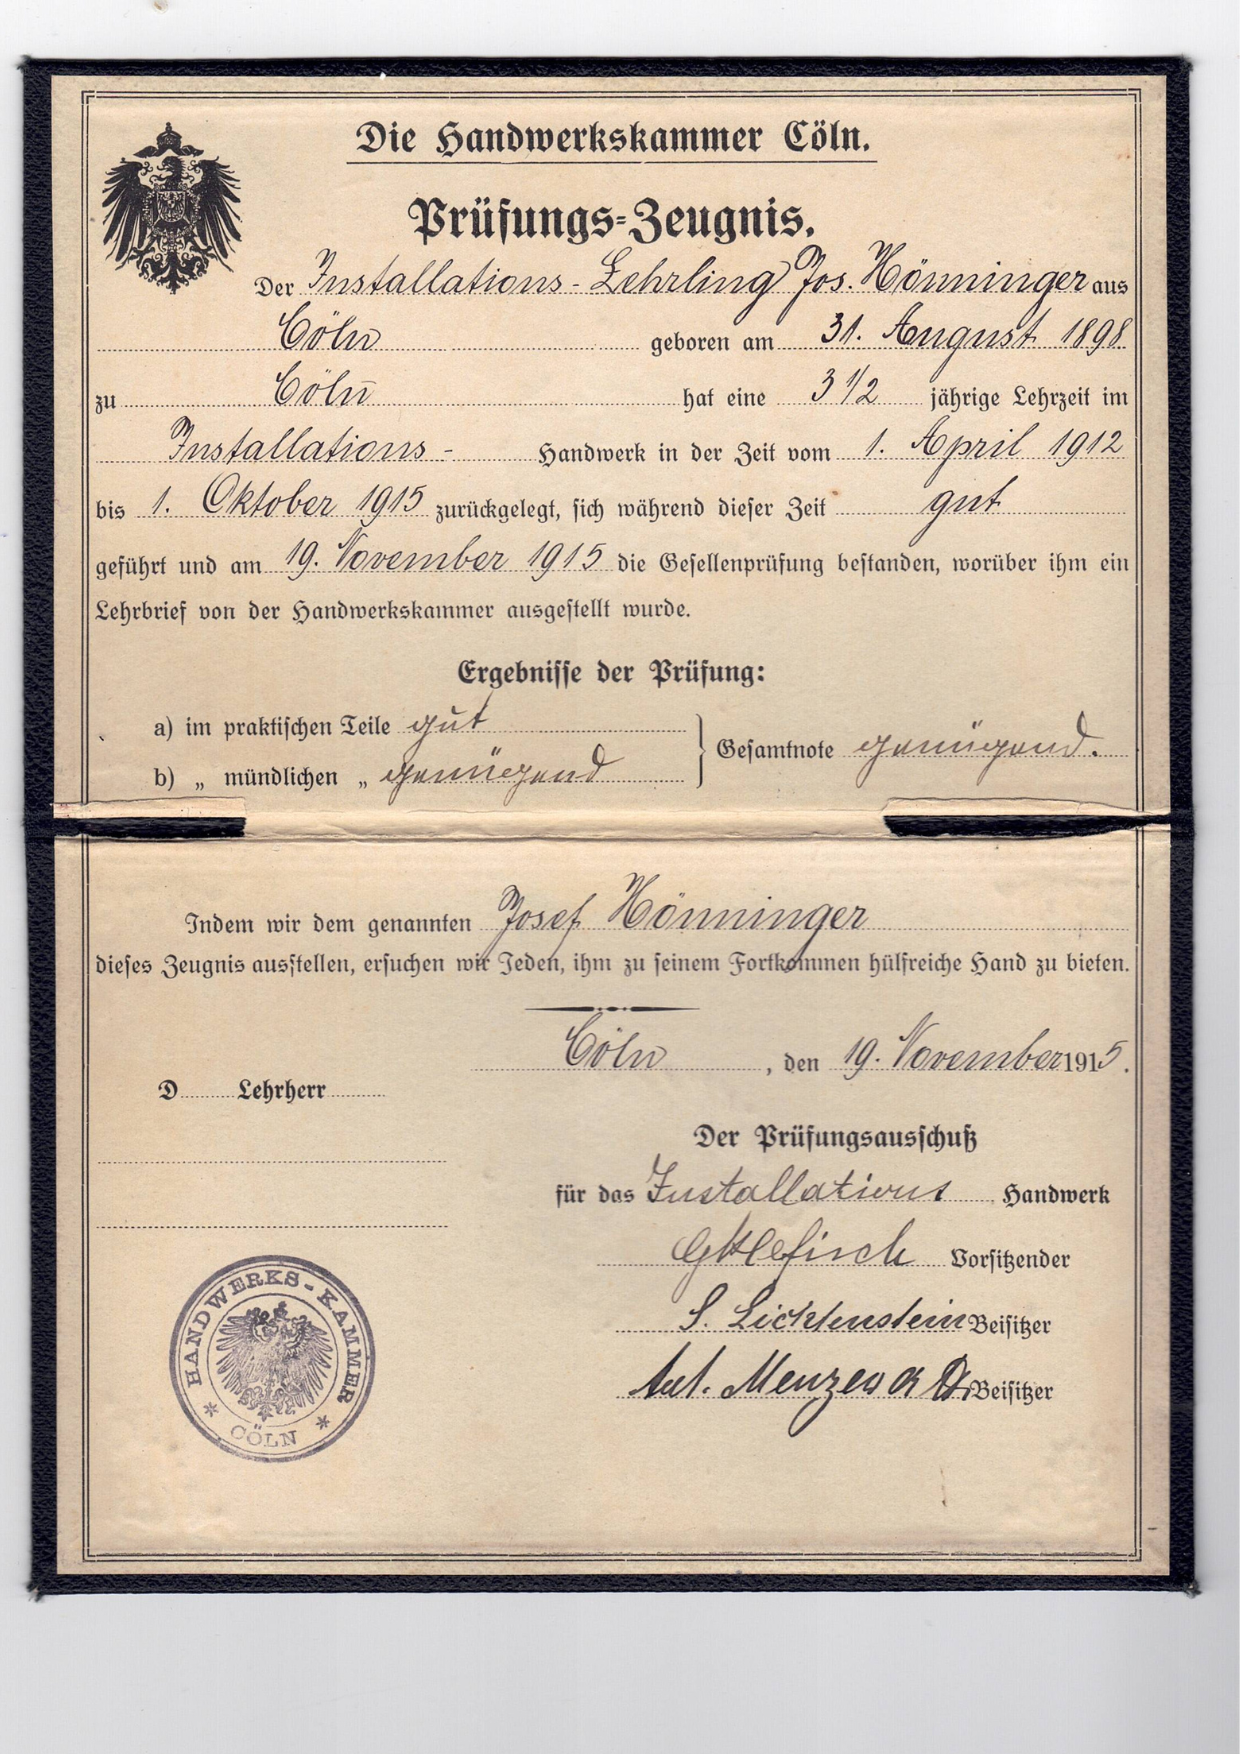 Die Handwerkskammer Cöln.
Prüfungs-Zeugnis.
Der Installations-Lehrling Jos. Hönninger aus
Cöln geboren am 31. August 1898
zu Cöln hat eine 3 1/2 jährige Lehrzeit im
Installations- Handwerk in der Zeit vom 1. April 1912
bis 1. Oktober 1915 zurückgelegt, sich während dieser Zeit gut
geführt und am 19. November 1915 die Gesellenprüfung bestanden, worüber ihm ein
Lehrbrief von der Handwerkskammer ausgestellt wurde.
Ergebnisse der Prüfung:
a) im praktischen Teile gut
b) „ mündlichen „ genügend
Gesamtnote genügend.
Indem wir dem genannten Josef Hönninger
dieses Zeugnis ausstellen, ersuchen wir Jeden, ihm zu seinem Fortkommen hülfreiche Hand zu bieten.
Cöln, den 19. November 1915.
D Lehrherr
Der Prüfungsausschuß
für das Installations Handwerk
Vorsitzender
S. Lichtenstein Beisitzer
Beisitzer
HANDWERKS-KAMMER
* CÖLN *